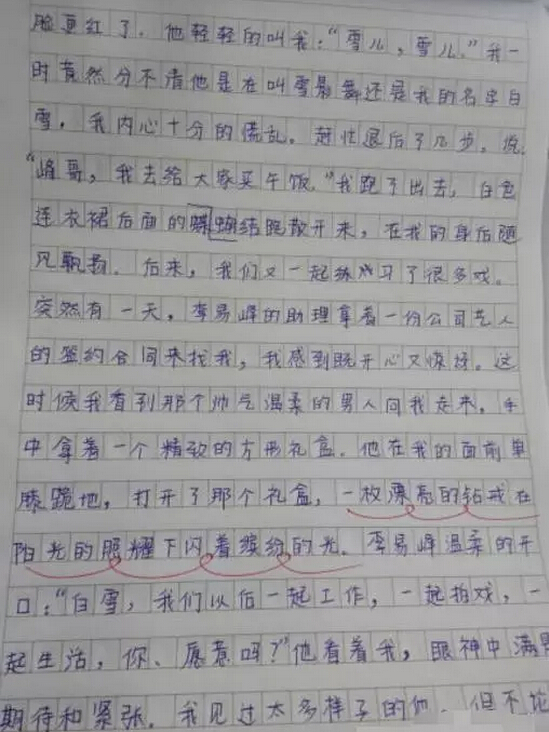 脸更红了。他轻轻的叫我:“雪儿,雪儿。”我一
时竟然分不清他是在叫雪景舞还是我的名字白
雪,我内心十分的慌乱。赶忙退后了几步。说,
“峰哥,我去给大家买午饭。”我跑了出去,白色
连衣裙后面的蝴蝶结跑散开来,在我的身后随
风飘扬。后来,我们又一起练习了很多戏。
突然有一天,李易峰的助理拿着一份公司艺人
的签约合同来找我,我感到既开心又惊讶。这
时候我看到那个帅气温柔的男人向我走来,手
中拿着一个精致的方形礼盒。他在我的面前单
膝跪地,打开了那个礼盒,一枚漂亮的钻戒在
阳光的照耀下闪着缤纷的光。李易峰温柔的开
口:“白雪,我们以后一起工作,一起拍戏,一
起生活,你、愿意吗?”他看着我,眼神中满是
期待和紧张。我见过太多样子的他,但不论